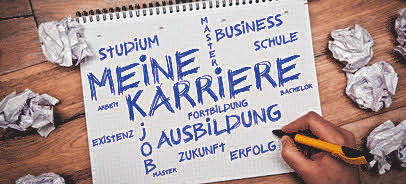 MASTER
STUDIUM
BUSINESS
SCHULE
MEINE
KARRIERE
ARBEIT
BACHELOR
FORTBILDUNG
EXISTENZ
JOB
AUSBILDUNG
ZUKUNFT
ERFOLG
MASTER